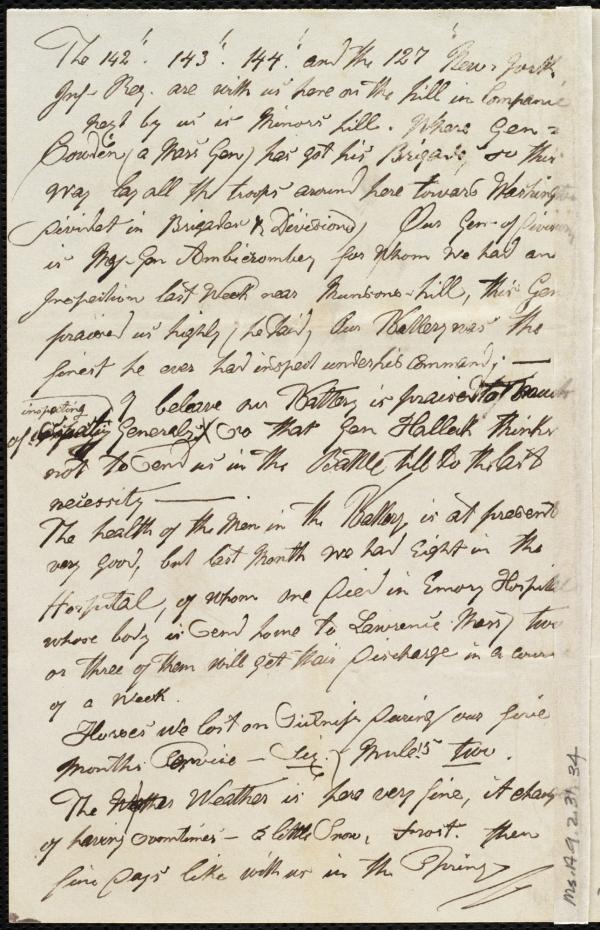 The 142". 143". 144". and the 127" New-York
Inf- Reg. are with us here on the hill in Companie
next by us is Minors hill. Where Gen=
Cowden (a Mass Gen) has got his Brigade, so this
way lay all the troops around here toward Washington
divided in Brigades & Devesions, Our Gen-of Division
is Maj-Gen Ambicromby for whom we had an
Inspection last Week near Munsons-hill, this Gen
praised us highly, he said, Our Battery was the
finest he ever had inspect under his Command; —
I beleave our Battery is praised to
inspecting
of Generals, so that Gen Halleck thinks
not to send us in the Battle till to the last
necessity —
The health of the Men in the Battery, is at present
very good, but last Month we had Eight in the
Hospital, of whom one died in Emory Hospital
whose body is send home to Lawrence Mass, two
or three of them will get their discharge in a course
of a Week.
Horses we lost on during our five
months Service — Six, Mules two.
The Weather is here very fine, it chang
of having somtimes — a little Snow, Frost. then
fine days like with us in the Spring
Ms. A.9.2.31.34